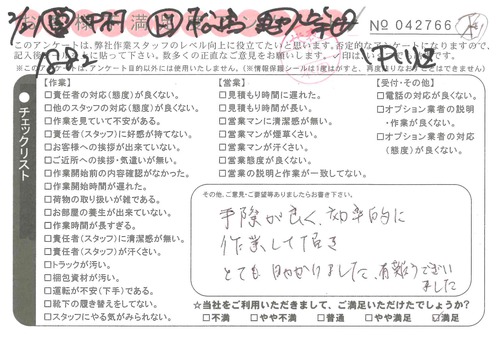 No 042766
このアンケートは、弊社作業スタッフのレベル向上に役立てたいと思います。否定的なアンケートになりますので、
記入後
に貼って下さい。数多くの正直なご意見をお願いします。
※このアンケートは、アンケート目的以外には使用いたしません。(※情報保護シールは1度はがすと、再度貼りなおすことはできません)
チェックリスト
【作業】
□責任者の対応(態度)が良くない。
□他のスタッフの対応(態度)が良くない。
□作業を見ていて不安がある。
□責任者(スタッフ)に好感が持てない。
□お客様への挨拶が出来ていない。
□ご近所への挨拶・気遣いが無い。
□作業開始前の内容確認がなかった。
□作業開始時間が遅れた。
□荷物の取り扱いが雑である。
□お部屋の養生が出来ていない。
□作業時間が長すぎる。
□責任者(スタッフ)に清潔感が無い。
□責任者(スタッフ)が汗くさい。
□トラックが汚い。
□梱包資材が汚い。
□運転が不安(下手)である。
□靴下の履き替えをしてない。
□スタッフにやる気がみられない。
【営業】
□見積もり時間に遅れた。
□見積もり時間が長い。
□営業マンに清潔感が無い。
□営業マンが煙草くさい。
□営業マンが汗くさい。
□営業態度が良くない。
□営業の説明と作業が一致してない。
【受付・その他】
□電話の対応が良くない。
□オプション業者の説明
・作業が良くない。
□オプション業者の対応
(態度)が良くない。
その他、ご意見・ご要望等ありましたらお書き下さい。
手際が良く、効率的に
作業して頂き
とても助かりました。有難うござい
ました
☆当社をご利用いただきまして、ご満足いただけたでしょうか?
□不満 □やや不満 □普通 □やや満足 ☑満足